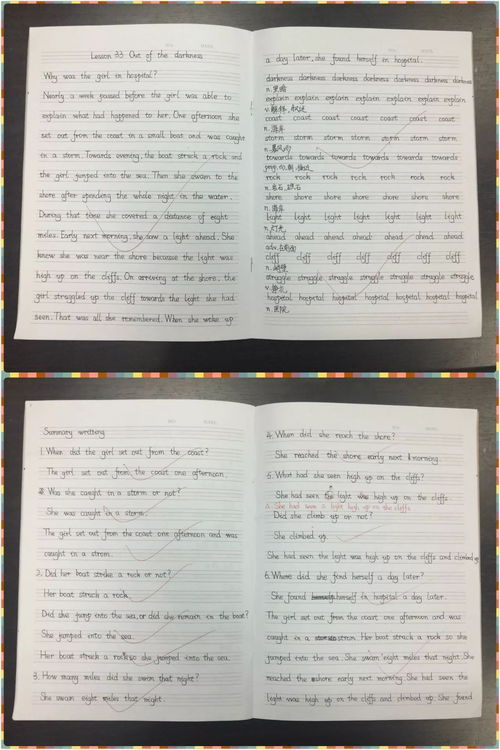 Lesson 33 Out of the darkness
Why was the girl in hospital?
Nearly a week passed before the girl was able to
explain what had happened to her. One afternoon she
set out from the coast in a small boat and was caught
in a storm. Towards evening, the boat struck a rock and
the girl jumped into the sea. Then she swam to the
shore after spending the whole night in the water.
During that time she covered a distance of eight
miles. Early next morning, she saw a light ahead. She
knew she was near the shore because the light was
high up on the cliffs. On arriving at the shore, the
girl struggled up the cliff towards the light she had
seen. That was all she remembered. When she woke up
a day later, she found herself in hospital.
darkness darkness darkness darkness darkness darkness darkness
n. 黑暗
explain explain explain explain explain explain explain
v. 解释，叙述
coast coast coast coast coast coast coast
n. 海岸
storm storm storm storm storm storm storm
n. 暴风雨
towards towards towards towards towards towards
prep. 向，朝，接近
rock rock rock rock rock rock rock
n. 岩石，礁石
shore shore shore shore shore shore shore
n. 海岸
light light light light light light light
n. 灯光
ahead ahead ahead ahead ahead ahead ahead
adv. 在前面
cliff cliff cliff cliff cliff cliff cliff
n. 峭壁
struggle struggle struggle struggle struggle struggle struggle
v. 挣扎
hospital hospital hospital hospital hospital hospital hospital
n. 医院
Summary writting
1. When did the girl set out from the coast?
The girl set out from the coast one afternoon.
Was she caught in a storm or not?
She was caught in a storm.
The girl set out from the coast one afternoon and was
caught in a strom.
2. Did her boat strike a rock or not?
Her boat struck a rock.
Did she jump into the sea, or did she remain in the boat?
She jumped into the sea.
Her boat struck a rock so she jumped into the sea.
3. How many miles did she swim that night?
She swam eight miles that night.
4. When did she reach the shore?
She reached the shore early next morning.
5. What had she seen high up on the cliffs?
She had seen the light was high up on the cliffs.
She had seen a light high up on the cliffs
Did she climb up or not?
She climbed up.
She had seen the light was high up on the cliffs and climbed up.
6. Where did she find herself a day later?
She found herself in hospital a day later.
The girl set out from the coast one afternoon and was
caught in a strom. Her boat struck a rock so she
jumped into the sea. She swam eight miles that night. She
reached the shore early next morning. She had seen the
light was high up on the cliffs and climbed up. She found